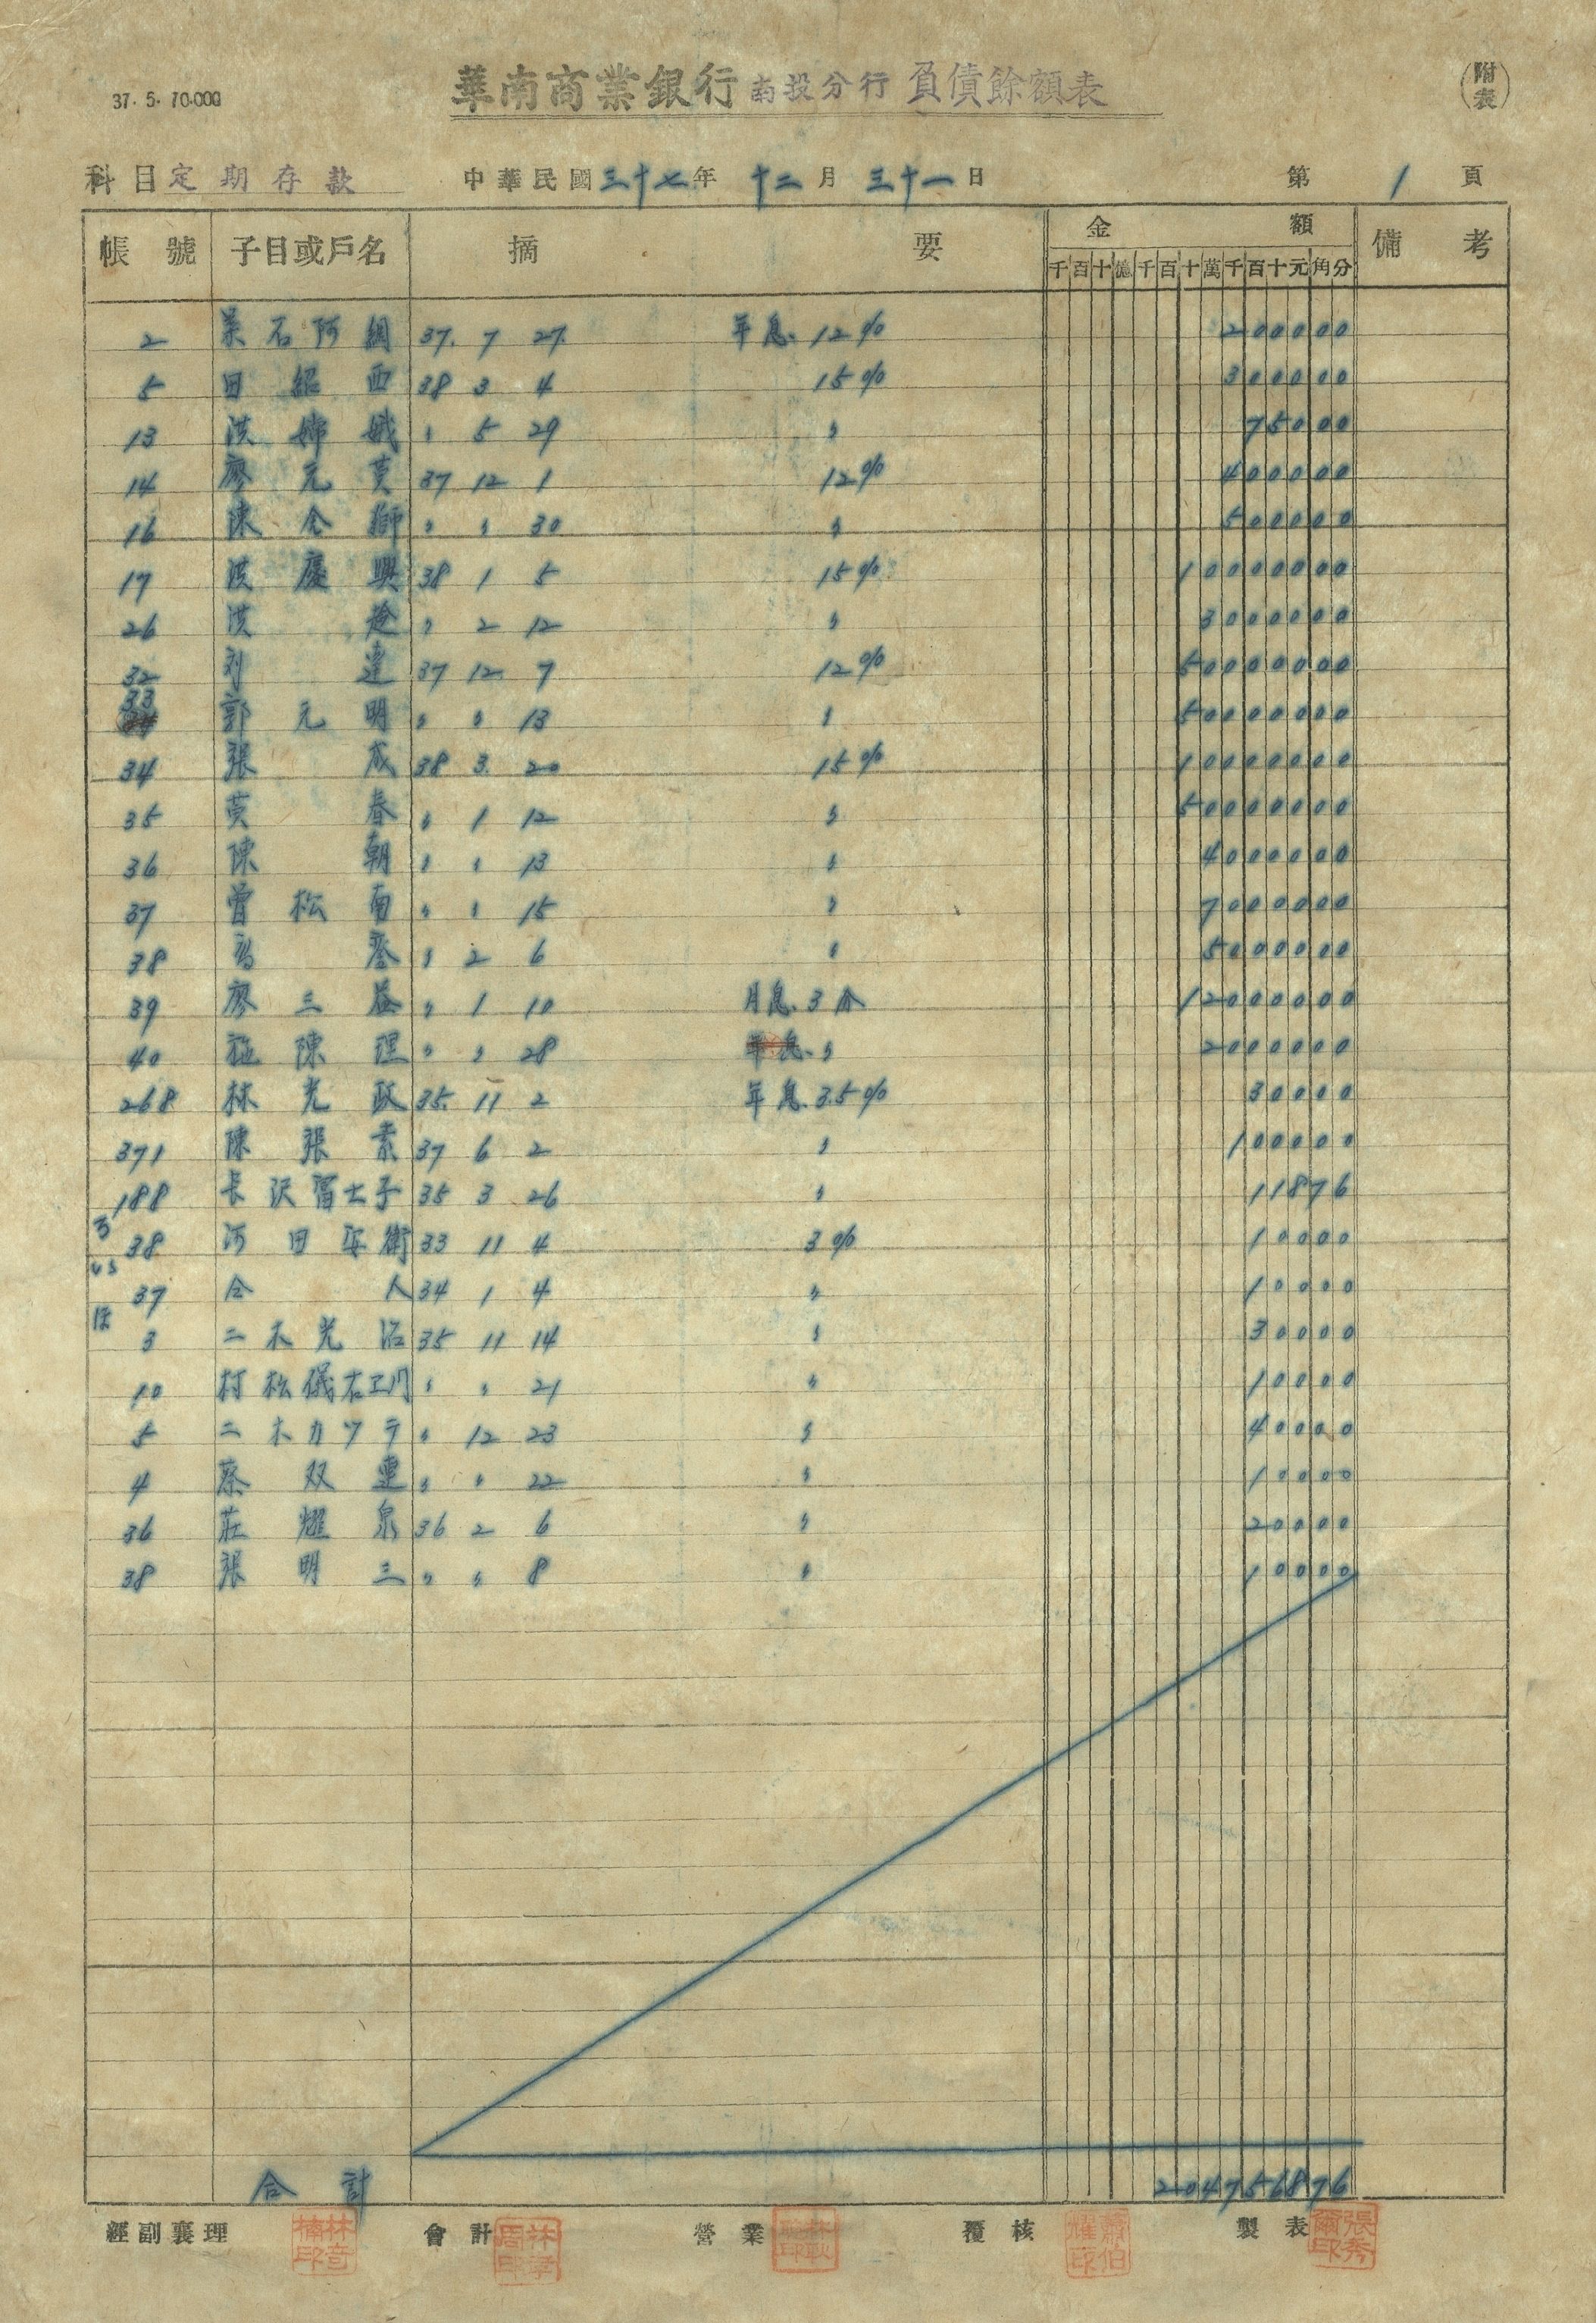 37. 5. 70.000
華南商業銀行 南投分行 負債餘額表
(附表)
科目 定期存款 中華民國三十七年 十二月 三十一日 第 1 頁
帳號 子目或戶名 摘要 金額 備考
千百十億千百十萬千百十元角分
2 葉石阿綢 37. 7 27. 年息. 12% 200000
5 田紹西 38 3 4 15% 300000
13 洪嫦娥 〃 5 29 〃 75000
14 廖元 37 12 1 12% 400000
16 陳金獅 〃 〃 30 〃 500000
17 洪慶興 38 1 5 15% 10000000
26 洪 〃 2 12 〃 3000000
32 刘達 37 12 7 12% 50000000
33 郭元明 〃 〃 13 〃 50000000
34 張成 38 3. 20 15% 10000000
35 黄春 〃 1 12 〃 50000000
36 陳朝 〃 〃 13 〃 4000000
37 曾松南 〃 〃 15 〃 7000000
38 〃 2 6 〃 5000000
39 廖三益 〃 1 10 月息. 3分 12000000
40 陳 〃 〃 28 年息. 〃 2000000
268 林光政 35. 11 2 年息. 3.5% 30000
371 陳張素 37 6 2 〃 100000
188 長沢富士子 35 3 26 〃 11876
ろ 38 河田安衛 33 11 4 3% 10000
い 37 仝人 34 1 4 〃 10000
ほ 3 二木光治 35 11 14 〃 30000
10 村松儀右エ门 〃 〃 21 〃 10000
5 二木カツラ 〃 12 23 〃 40000
4 蔡双連 〃 〃 22 〃 10000
36 莊耀泉 36 2 6 〃 20000
38 張明三 〃 〃 8 〃 10000
合計 204756876
經副襄理 會計 營業 覆核 製表